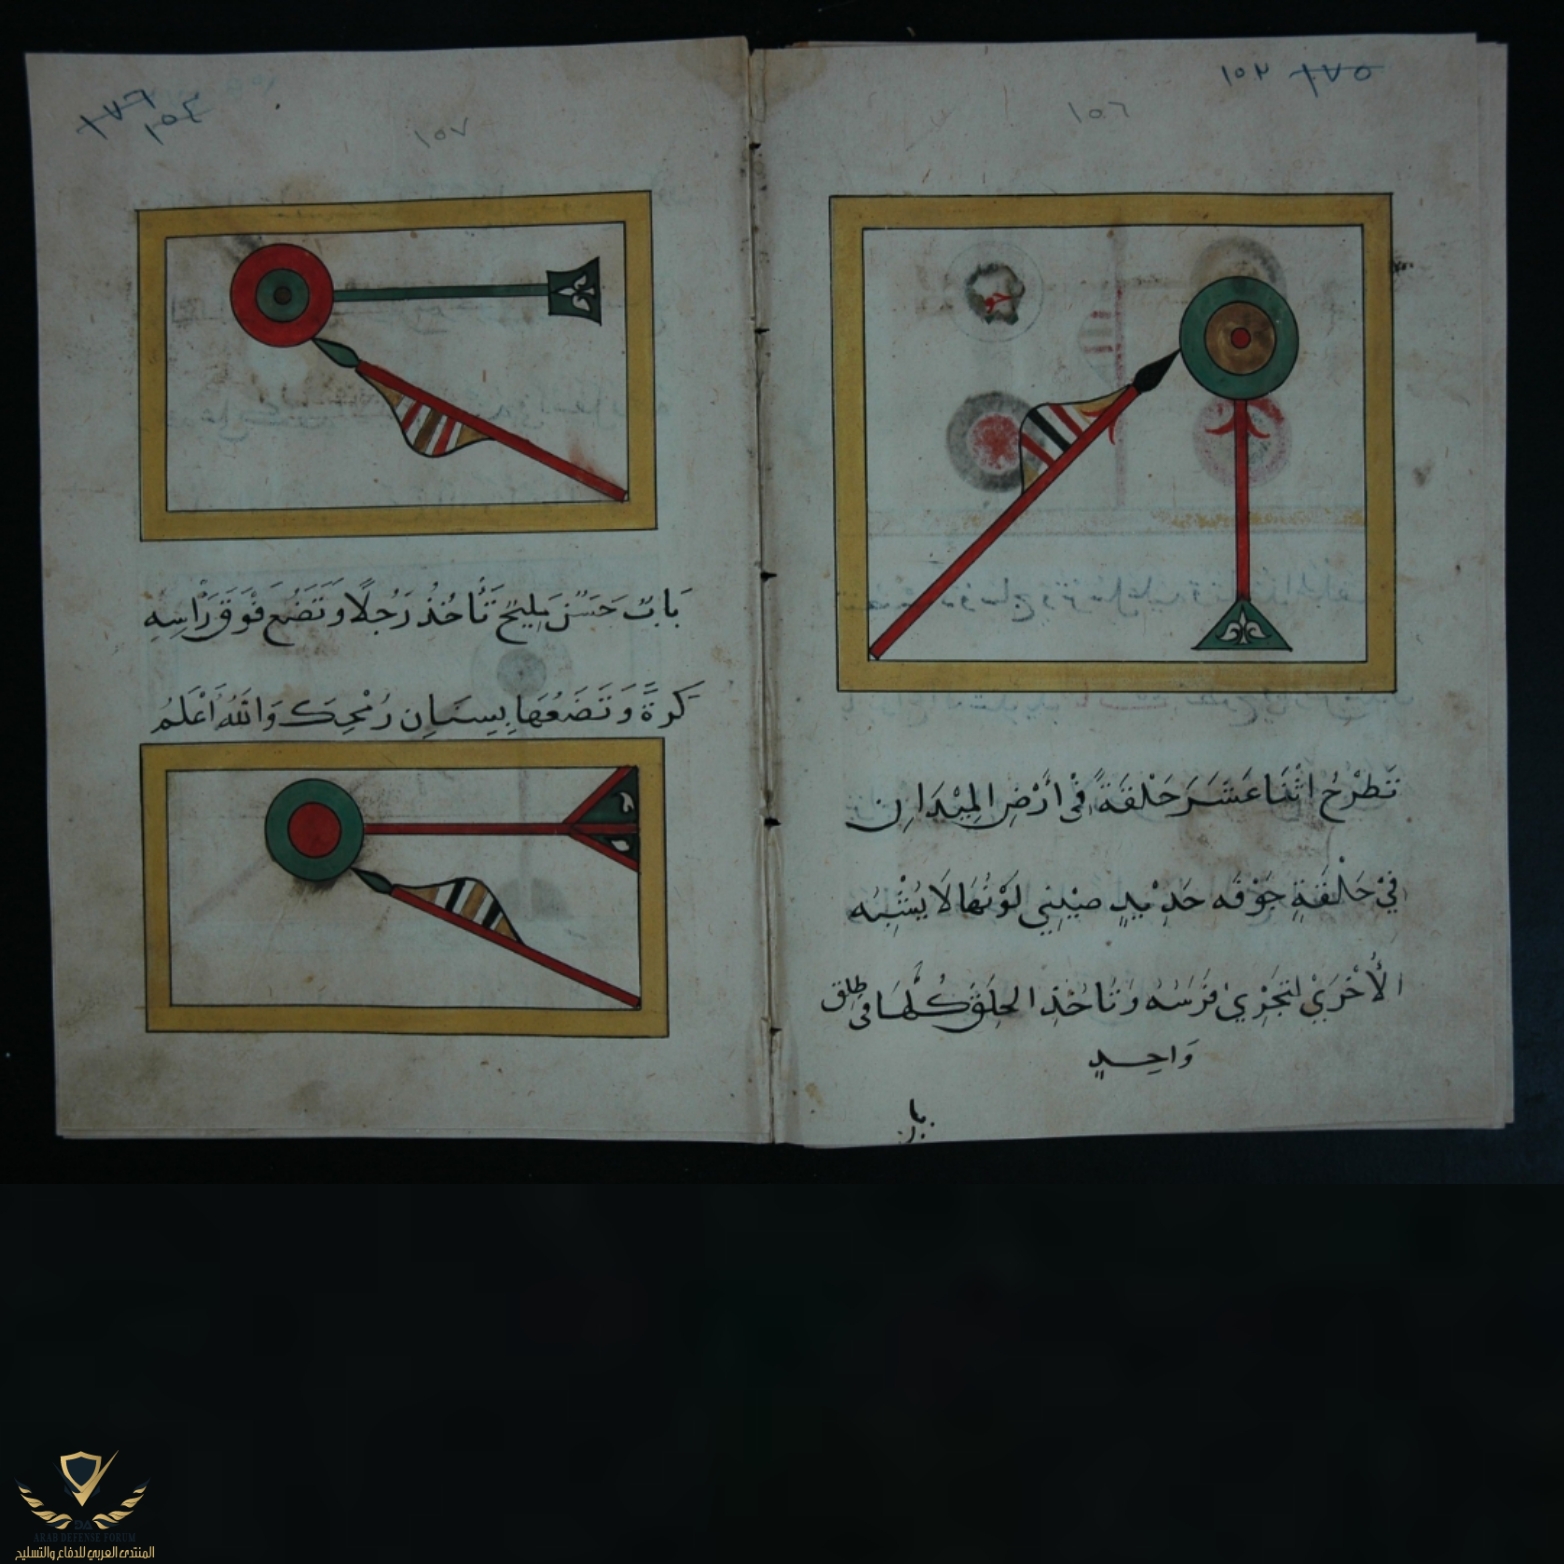 ١٥٣ ١٧٥
١٥٦
تَطرْحُ اثْنَا عَشَرَ حَلْقَةً فِى أَرْضِ المِيْدَانِ
فِيْ حَلْقَةٍ جَوْقَه حَدِيْدٍ صِيْنِي لَوْنُهَا لَا يُشْبِهُ
الْأُخْرَيْ لتَجْرِيْ فَرَسَهُ وَتَأخُذِ الحِلَقَ كُلَّهَا فى طلق
وَاحِدٍ
باب
١٥٧
١٧٦
١٥٤
بَابٌ حَسَنٌ مَلِيحٌ تَأْخُذُ رَجُلًا وَتَضَعَ فَوْقَ رَأسِهِ
كَرةً وَتَضَعُهَا بِسِنَانِ رُمْحِكَ وَاللهُ أَعْلَمُ
DA
ARAB DEFENSE FORUM
المنتدى العربي للدفاع والتسليح